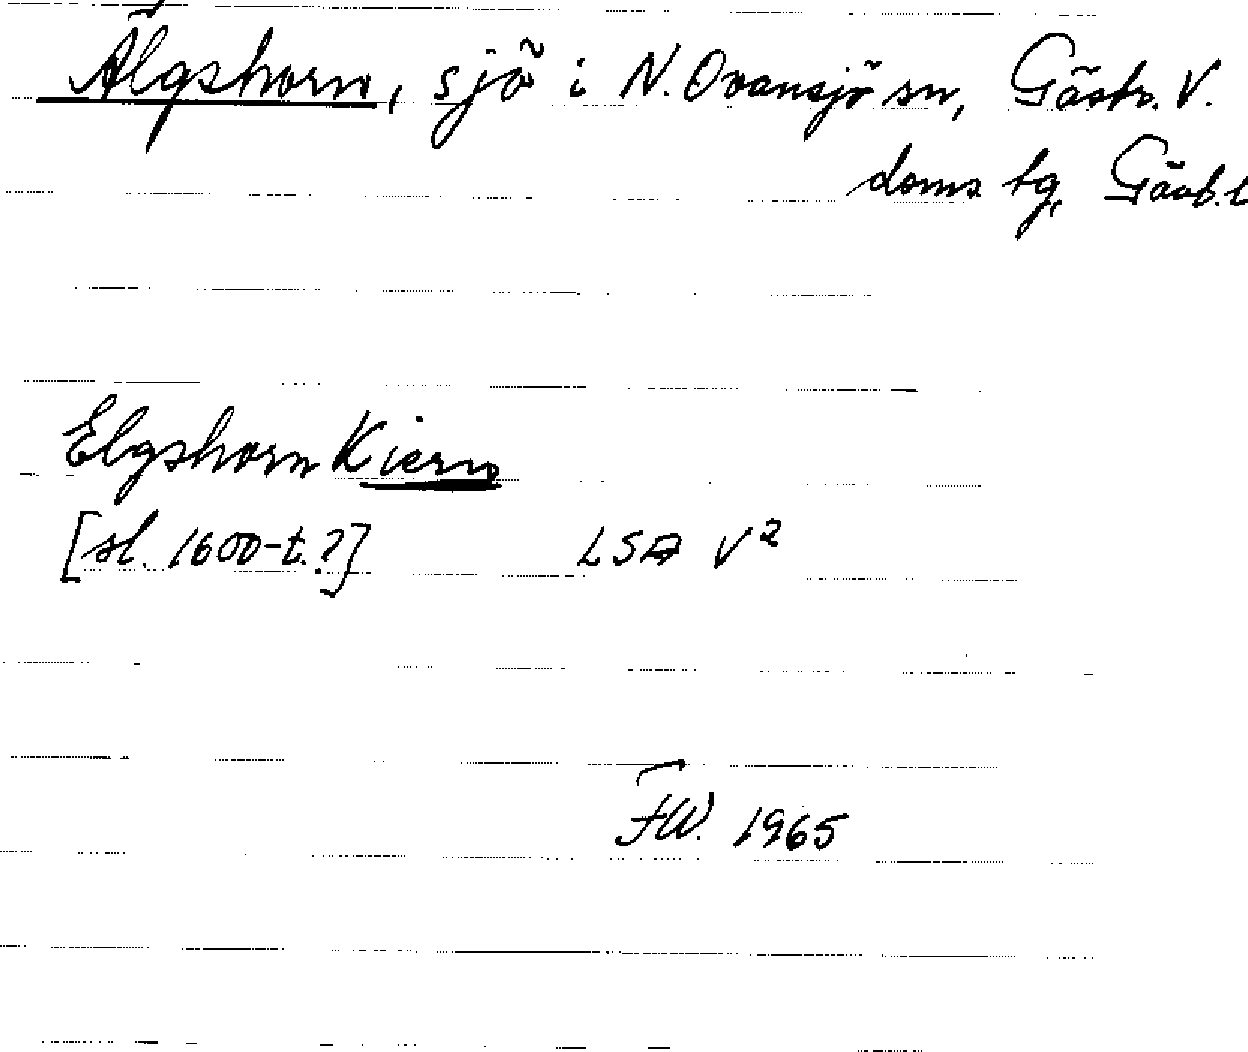 Älgshorn, sjö i N. Ovansjö sn, Gästr. V.
doms tg, Gävb. l
Elgshorn Kiern
[sl. 1600-t.?] LSA V²
FW. 1965